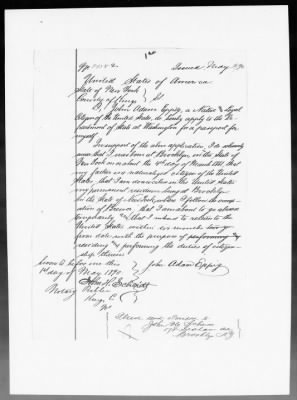 Issued May
United States of America
State of New York
County of Kings
I, John Adam Eppig, a Native & Loyal
Citizen of the United States, do hereby apply to the De-
partment of State at Washington for a passport for
myself.
In support of the above application, I do solemnly
swear that I was born at Brooklyn, in the State of
New York, on or about the day of
my father is a naturalized citizen of the United
States, that I am domiciled in the United States
my permanent residence being at Brooklyn
in the State of New York, where I follow the occup-
ation of Brewer, that I am about to go abroad
temporarily, & that I intend to return to the
United States within six months
from date with the purpose of performing
residing & performing the duties of citizen-
ship therein
Sworn to before me this
1st day of May 1890
John Adam Eppig
John H. Schmidt
Notary Public
Kings Co.
NY
Please send Passport to
John
Brooklyn NY